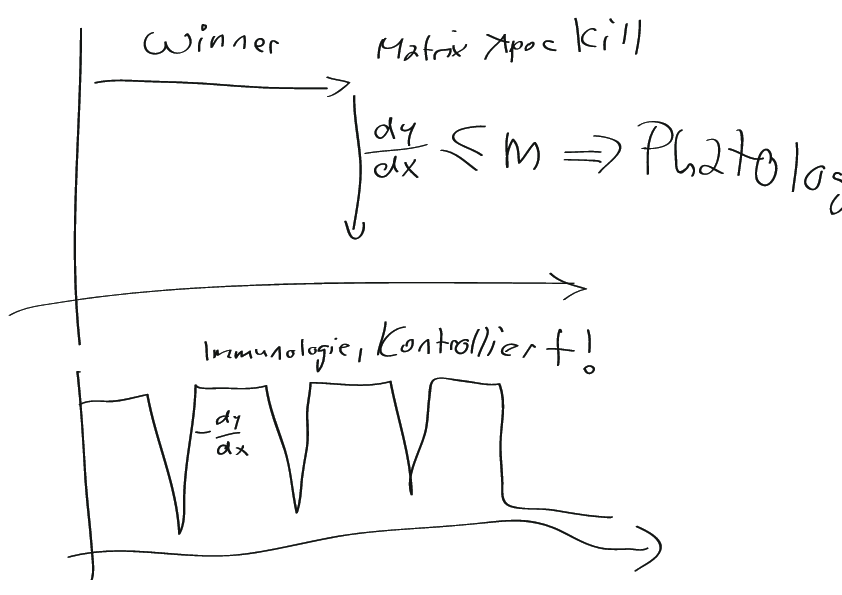 Winner
Matrix Apoc Kill
dy/dx ≤ m ⇒ Phatolog
Immunologie, Kontrolliert!
-dy/dx